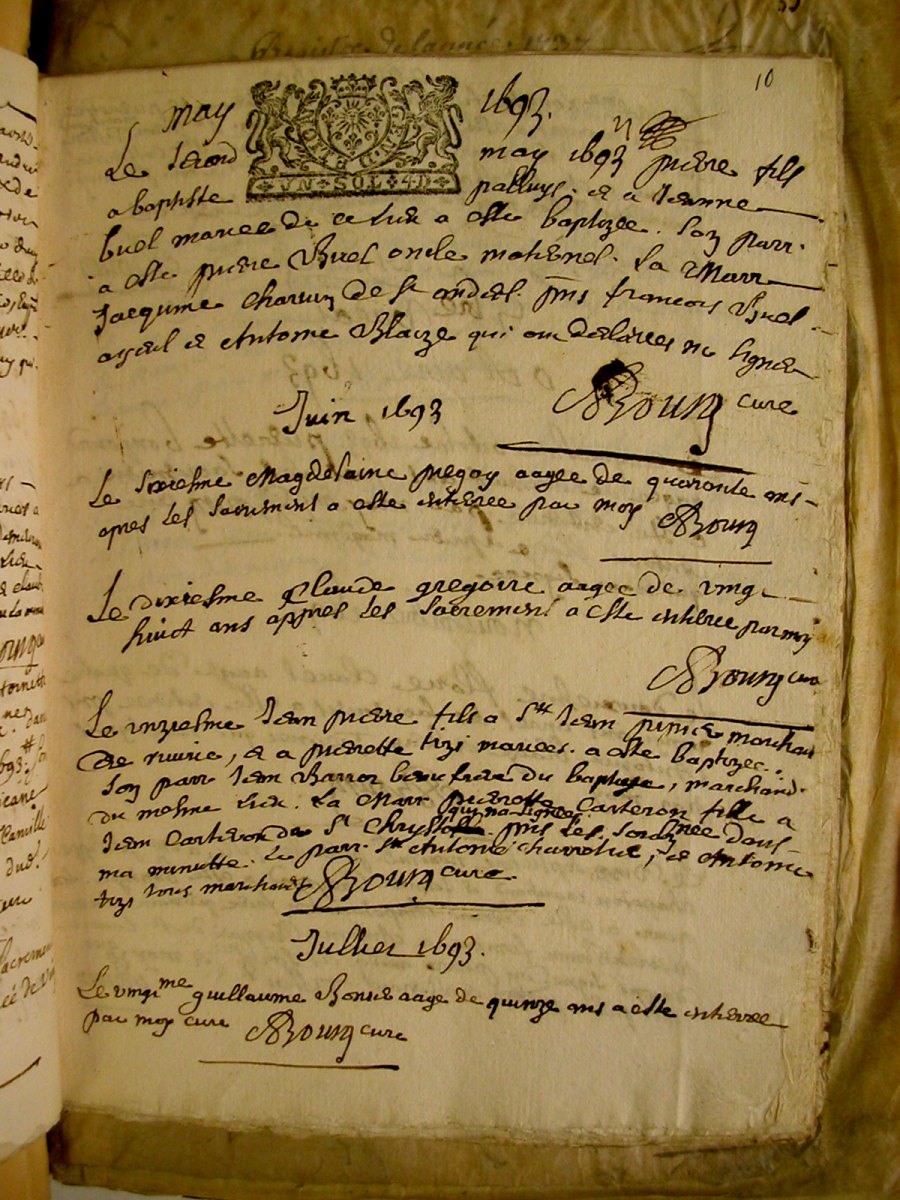 10
may 1693.
Le second may 1693 pierre fils
a baptiste palluys. et a Jeanne
buel mariee de ce lieu a este baptizee. Son parr.
a este pierre Buel oncle maternel. La Marr
Jacqueme Charvin de St andiel. pnts francois Buel
ayeul et Antoine Blaize qui ont declares ne signer
ABourg cure
Juin 1693
Le sixiesme Magdelaine aagee de quarante ans
apres les sacrements a este enterree par moy ABourg
Le dixiesme Claude gregoire aagee de vingt
huict ans appres les sacrements a este enterree par moy
ABourg cure
Le unziesme Jean pierre fils a Sr Jean marchant
de et a pierette tizi mariees. a este baptizee.
Son parr Jean Barroz beau frere du baptize, marchand
du mesme lieu. La Marr pierette Carteron fille a
Jean Carteron de St qui na signee. pnts les dans
ma minutte. Le parr. Sr Antoine et Antoine
tizi tous marchands ABourg cure.
Julliet 1693.
Le vingtme guillaume aage de quinze ans a este enterree
par moy cure ABourg cure
VN SOL 4D